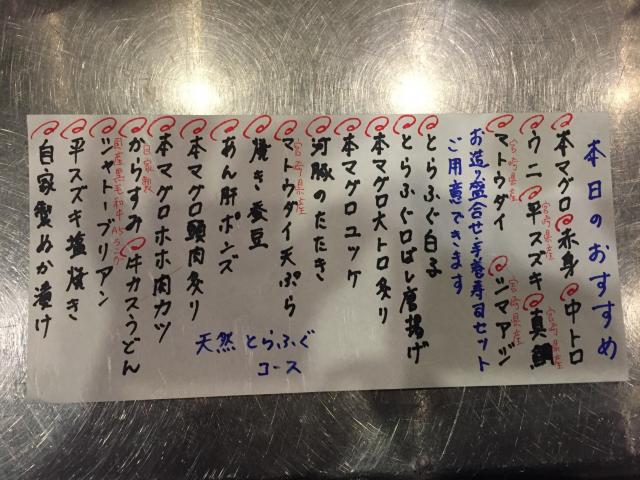 本日のおすすめ
本マグロ 赤身 中トロ
宮崎県産 宮崎県産
ウニ 平スズキ 真鯛
宮崎県産 宮崎県産
マトウダイ シマアジ
お造り盛合せ・手巻寿司セット
ご用意できます
とらふぐ白子
とらふぐ口ばし唐揚げ
本マグロ大トロ炙り
本マグロユッケ
河豚のたたき
宮崎県産
マトウダイ天ぷら
焼き蚕豆
あん肝ポンズ
本マグロ頭肉炙り
本マグロホホ肉カツ
自家製
からすみ 牛カスうどん
国産黒毛和牛A5ランク
シャトーブリアン
平スズキ塩焼き
自家製ぬか漬け
天然とらふぐ
コース